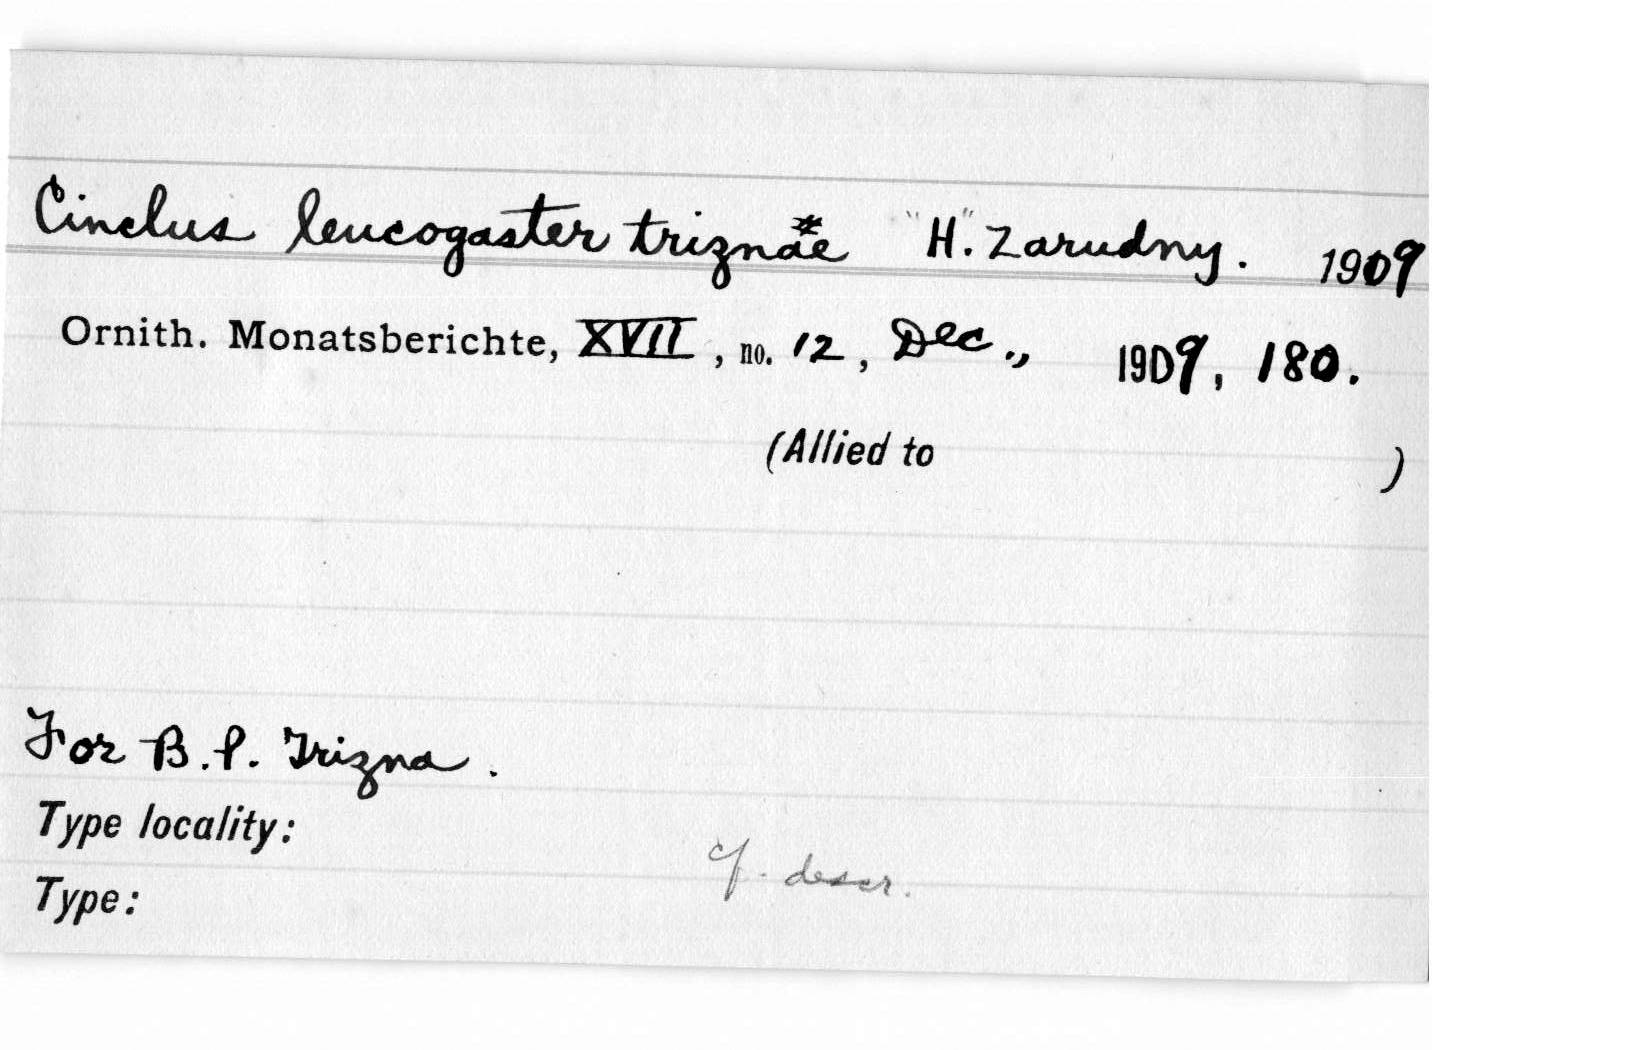 Cinclus leucogaster triznae "H". Zarudny. 1909
Ornith. Monatsberichte, XVII, no. 12, Dec., 1909, 180.
(Allied to )
For B.P. Trizna.
Type locality:
cf. descr.
Type: